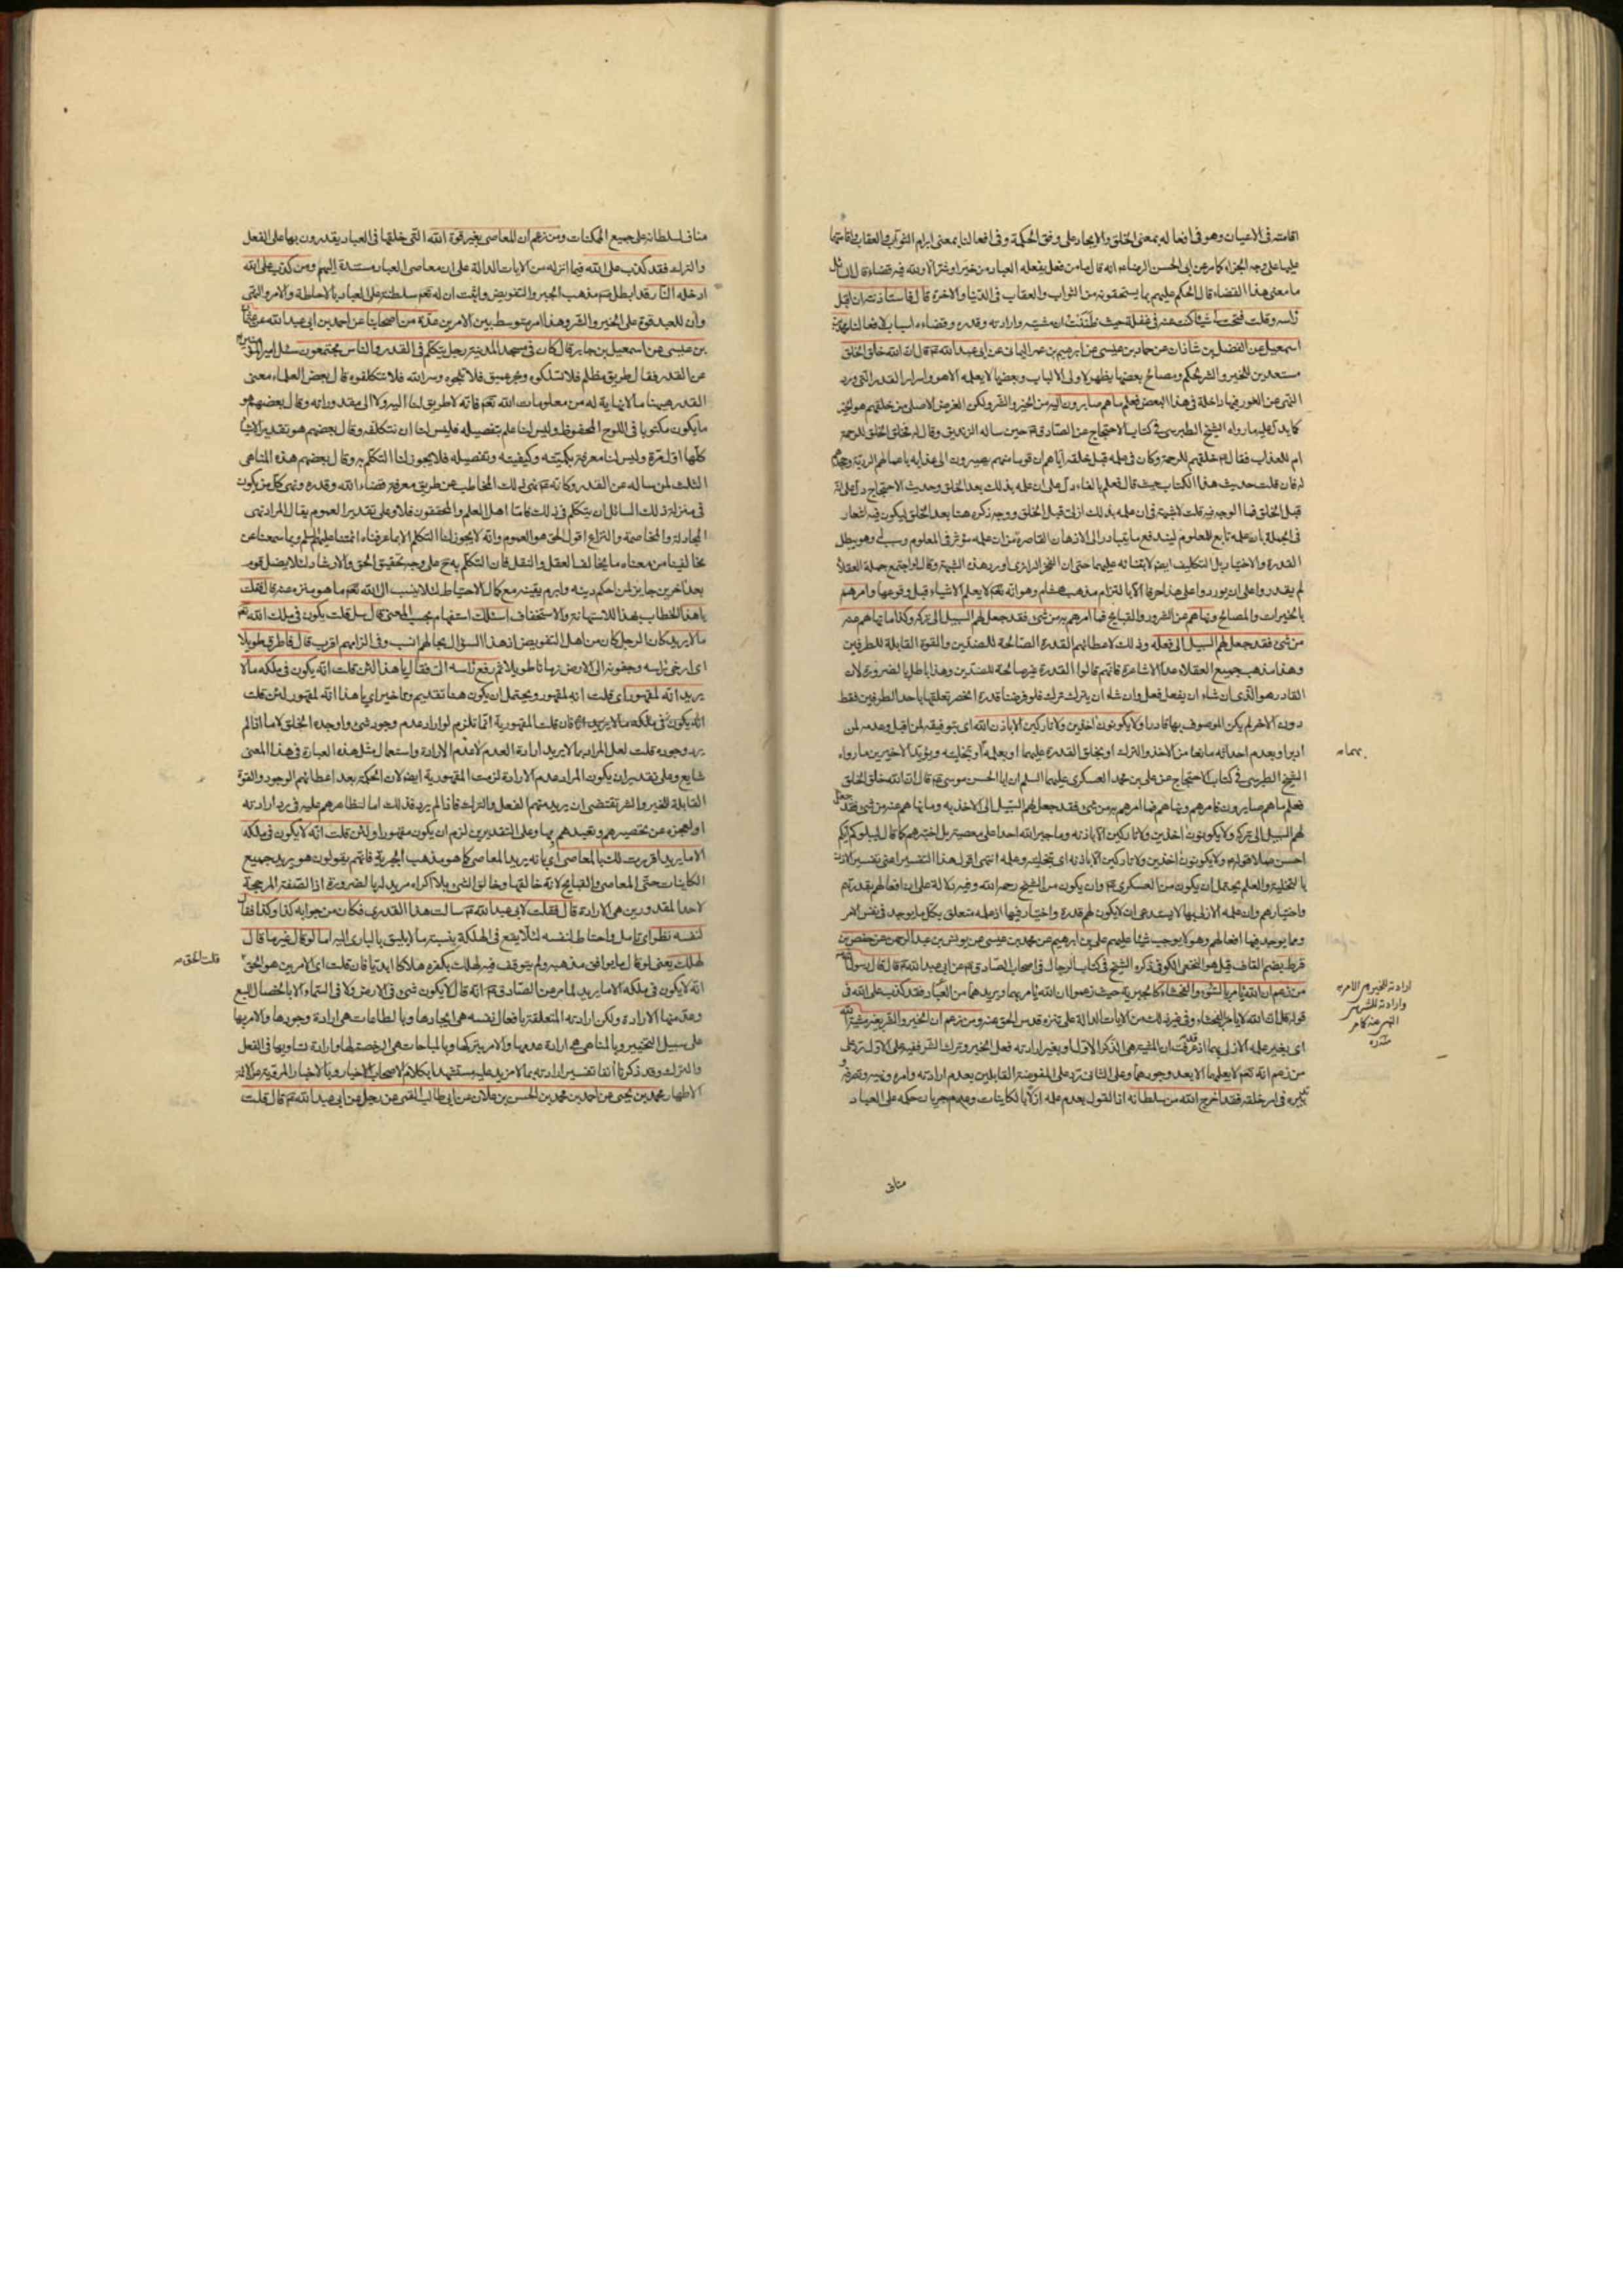 اقامته فى الاعيان وهو فى افعاله بمعنى الخلق والايجاد على وفق الحكمة وفى افعالنا بمعنى ابرام الثواب والعقاب واقامتها
عليها على وجه الجزاء كما مر عن ابى الحسن الرضاء انه قال ما من فعل يفعله العباد من خير او شر الا ولله فيه قضاء قال
ما معنى هذا القضاء قال الحكم عليهم بما يستحقونه من الثواب والعقاب فى الدنيا والاخرة قال فاستاذنته ان اقبل
راسه وقلت فتحت لى شيئا كنت عنه فى غفلة حيث ان مشيته وارادته وقدره وقضاءه اسباب لافعالنا
اسمعيل عن الفضل بن شاذان عن حماد بن عيسى عن ابرهيم بن عمر اليمانى عن ابى عبد الله عم قال ان الله خلق الخلق
مستعدين للخير والشر لحكم ومصالح بعضها يظهر لاولى الالباب وبعضها لا يعلمه الا هو واسرار القدر التى ورد
النهى عن الغور فيها داخلة فى هذا البعض فعلم ما هم صايرون اليه من الخير والشر ولكن الغرض الاصلى من خلقهم هو الخير
كما يدل عليه ما رواه الشيخ الطبرسى فى كتاب الاحتجاج عن الصادق عم حين ساله الزنديق وقال لم خلق الخلق للرحمة
ام للعذاب فقال عم خلقهم للرحمة وكان فى علمه قبل خلقه اياهم ان قوما منهم يصيرون الى عذابه باعمالهم الردية وجحدهم
له فان قلت حديث هذا الكتاب حيث قال فعلم بالفاء دل على ان علمه بذلك بعد الخلق وحديث الاحتجاج دل على انه
قبل الخلق فما الوجه فيه قلت لا شبهة فى ان علمه بذلك ازلى قبل الخلق ووجه ذكره هنا بعد الخلق ليكون فيه اشعار
فى الجملة بان علمه تابع للمعلوم ليندفع ما يتبادر الى الاذهان القاصرة من ان علمه مؤثر فى المعلوم وسبب له وهو يبطل
القدرة والاختيار بل التكليف ايضا لابتنائه عليهما حتى ان الفخر الرازى اورد هذه الشبهة وقال لو اجتمع جملة العقلاء
لم يقدروا على ان يوردوا على هذا حرفا الا بالتزام مذهب هشام وهو انه تعم لا يعلم الاشياء قبل وقوعها وامرهم
بالخيرات والمصالح ونهاهم عن الشرور والقبايح فما امرهم به من شىء فقد جعل لهم السبيل الى تركه وكذا ما نهاهم عنه
من شىء فقد جعل لهم السبيل الى فعله وذلك لاعطائهم القدرة الصالحة للضدين والقوة القابلة للطرفين
وهذا مذهب جميع العقلاء عدا الاشاعرة فانهم قالوا القدرة غير صالحة للضدين وهذا باطل بالضرورة لان
القادر هو الذى ان شاء ان يفعل فعل وان شاء ان يترك ترك فلو فرضنا قدرة انحصر تعلقها باحد الطرفين فقط
دون الاخر لم يكن الموصوف بها قادرا ولا يكونون اخذين ولا تاركين الا باذن الله اى بتوفيقه لمن اقبل وعدمه لمن
ادبر او بعدم احداثه مانعا من الاخذ والترك او بخلق القدرة عليهما او بعلمه او بتخليته ويؤيد الاخيرين ما رواه
الشيخ الطبرسى فى كتاب الاحتجاج عن على بن محمد العسكرى عليهما السلم ان ابا الحسن موسى عم قال ان الله خلق الخلق
فعلم ما هم صايرون فامرهم ونهاهم فما امرهم به من شىء فقد جعل لهم السبيل الى الاخذ به وما نهاهم عنه من شىء فقد جعل
لهم السبيل الى تركه ولا يكونون اخذين ولا تاركين الا باذنه وما جبر الله احدا على معصيته بل اختبرهم كما قال ليبلوكم ايكم
احسن عملا قوله ولا يكونون اخذين ولا تاركين الا باذنه اى بتخليته وعلمه انتهى اقول هذا التفسير اعنى تفسير الاذن
بالتخلية والعلم يحتمل ان يكون من العسكرى عم وان يكون من الشيخ رحمه الله وفيه دلالة على ان افعالهم بقدرتهم
واختيارهم وان علمه الازلى بها لا يستدعى ان لا يكون لهم قدرة واختيار فيها اذ علمه متعلق بكل ما يوجد فى نفس الامر
ومما يوجد فيها افعالهم وهو لا يوجب شيئا عليهم على بن ابرهيم عن محمد بن عيسى عن يونس بن عبد الرحمن عن حفص بن
قرط بضم القاف قيل هو النخعى الكوفى ذكره الشيخ فى كتاب الرجال فى اصحاب الصادق عم عن ابى عبد الله عم قال قال رسول الله
من زعم ان الله يامر بالسوء والفحشاء كالجبرية حيث زعموا ان الله يامر بهما ويريدهما من العباد فقد كذب على الله فى
قوله ان الله لا يامر بالفحشاء وفى غير ذلك من الايات الدالة على تنزه قدس الحق عنه ومن زعم ان الخير والشر بغير مشية الله
اى بغير علمه الازلى بهما اذ عرفت ان المشية هى الذكر الاول او بغير ارادته فعل الخير وترك الشر ففيه على الاول رد على
من زعم انه تعم لا يعلمها الا بعد وجودهما وعلى الثانى رد على المفوضة القايلين بعدم ارادته وامره ونهيه وتصرفه
وتدبيره فى امر خلقه فقد اخرج الله من سلطانه اذ القول بعدم علمه ازلا بالكاينات وعدم جريان حكمه على العباد
مناف
بمعناه
ارادته للخير هى الامر به
وارادته للشر هى
النهى عنه كما مر
مناف لسلطانه على جميع الممكنات ومن زعم ان المعاصى بغير قوة الله التى خلقها فى العباد يقدرون بها على الفعل
والترك فقد كذب على الله فيما انزله من الايات الدالة على ان معاصى العباد مستندة اليهم ومن كذب على الله
ادخله النار قد ابطل عم مذهب الجبر والتفويض واثبت ان له تعم سلطنة على العباد بالاحاطة والامر والنهى
وان للعبد قوة على الخير والشر وهذا امر متوسط بين الامرين عدة من اصحابنا عن احمد بن ابى عبد الله عن عثمان
بن عيسى عن اسمعيل بن جابر قال كان فى مسجد المدينة رجل يتكلم فى القدر والناس مجتمعون سئل امير المؤمنين
عن القدر فقال طريق مظلم فلا تسلكوه وبحر عميق فلا تلجوه وسر الله فلا تتكلفوه قال بعض العلماء معنى
القدر هيهنا ما لا نهاية له من معلومات الله تعم فانه لا طريق لنا اليه ولا الى مقدوراته وقال بعضهم هو
ما يكون مكتوبا فى اللوح المحفوظ وليس لنا علم بتفصيله فليس لنا ان نتكلفه وقال بعضهم هو تقدير الاشياء
كلها اول مرة وليس لنا معرفة بكميته وكيفيته وتفصيله فلا يجوز لنا التكلم به وقال بعضهم هذه المناهى
الثلث لمن ساله عن القدر وكانه عم نهى ذلك المخاطب عن طريق معرفة قضاء الله وقدره ونهى كل من يكون
فى منزلة ذلك السائل ان يتكلم فى ذلك فاما اهل العلم والمحققون فلا وعلى تقدير العموم يقال المراد نهى
المجادلة والمخاصمة والنزاع اقول الحق هو العموم وانه لا يجوز لنا التكلم الا بما عرفناه ائمتنا عليهم السلم وبما سمعنا عن
مخالفينا من معناه ما يخالف العقل والنقل فان التكلم به ح على وجه تحقيق الحق والارشاد لئلا يضل قوم
بعد اخرين جايز لمن احكم دينه وابرم يقينه مع كمال الاحتياط لئلا ينسب الى الله تعم ما هو منزه عنه قال فقلت
يا هذا الخطاب بهذا للاستهانة والاستخفاف اسئلك استفهام بحسب المعنى قال سل قلت يكون فى ملك الله تعم
ما لا يريد كان الرجل كان من اهل التفويض اذ هذا السؤال بحالهم انسب وفى الزامهم اقرب قال فاطرق طويلا
اى ارخى راسه وجفونه الى الارض زمانا طويلا ثم رفع راسه الى فقال يا هذا لئن قلت انه يكون فى ملكه ما لا
يريد انه لمقهور اى قلت انه لمقهور ويحتمل ان يكون هنا تقديم وتاخير اى يا هذا انه لمقهور لئن قلت
انه يكون فى ملكه ما لا يريد فان قلت المقهورية انما تلزم لو اراد عدم وجود شىء واوجده الخلق لا ما اذا لم
يرد وجوده قلت لعل المراد بما لا يريد ارادة العدم لا عدم الارادة واستعمال مثل هذه العبارة فى هذا المعنى
شايع وعلى تقدير ان يكون المراد عدم الارادة لزمت المقهورية ايضا لان الحكمة بعد اعطائهم الوجود والقوة
القابلة للخير والشر تقتضى ان يريد منهم الفعل والترك فاذا لم يرد فذلك اما لتظاهرهم عليه فى رد ارادته
او لعجزه عن تحصيرهم وتعبدهم بها وعلى التقديرين لزم ان يكون مقهورا ولئن قلت انه لا يكون فى ملكه
الا ما يريد اقررت لك بالمعاصى اى بانه يريد المعاصى كما هو مذهب الجبرية فانهم يقولون هو يريد جميع
الكاينات حتى المعاصى والقبايح لانه خالقها وخالق الشىء بلا اكراه مريد له بالضرورة اذ الصفة المرجحة
لاحد المقدورين هى الارادة قال فقلت لابى عبد الله عم سالت هذا القدرى فكان من جوابه كذا وكذا فقال
لنفسه نظر اى تامل واحتاط لنفسه لئلا يقع فى الهلكة بنسبة ما لا يليق بالبارى اليه اما لو قال غير ما قال
لهلك يعنى لو قال ما يوافق مذهبه ولم يتوقف فيه لهلك بكفره هلاكا ابديا فان قلت اى الامرين هو الحق
انه لا يكون فى ملكه الا ما يريد لما مر عن الصادق عم انه قال لا يكون شىء فى الارض ولا فى السماء الا بالخصال السبع
وعد منها الارادة ولكن ارادته المتعلقة بافعال نفسه هى ايجادها وبالطاعات هى ارادة وجودها والامر بها
على سبيل التخيير وبالمناهى هى ارادة عدمها والامر بتركها وبالمباحات هى الرخصة لها وارادة تساويها فى الفعل
والترك وقد ذكرنا انفا تفسير ارادته بما لا مزيد عليه مستشهدا بكلام لاصحاب الاخيار وبالاخبار المروية عن الائمة
الاطهار محمد بن يحيى عن احمد بن محمد بن الحسن بن علان عن ابى طالب القمى عن رجل عن ابى عبد الله عم قال قلت
قلت الحق